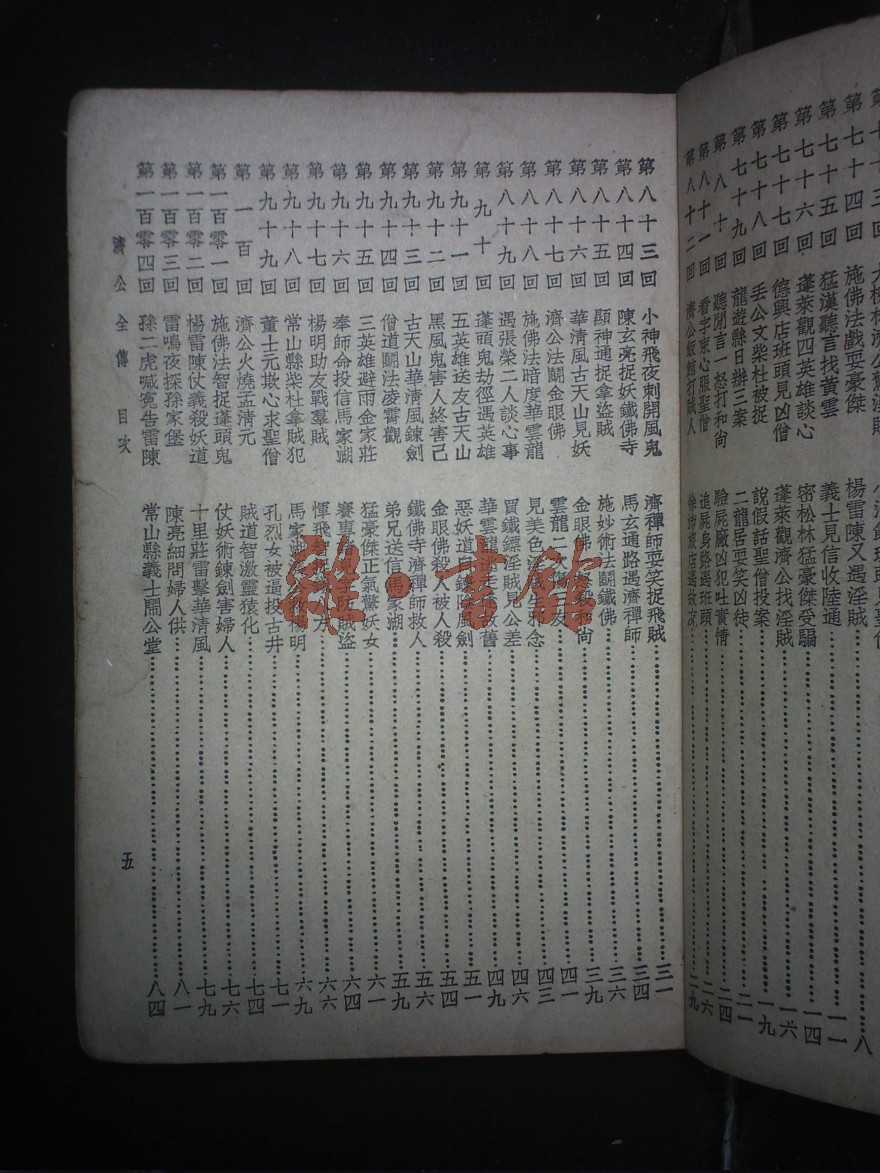 第七十四回 施佛法戲耍豪傑 楊雷陳又遇淫賊……八
第七十五回 猛漢聽言找黃雲 義士見信收陸通……一一
第七十六回 蓬萊觀四英雄談心 密松林猛豪傑受騙……一四
第七十七回 德興店班頭見凶僧 蓬萊觀濟公找淫賊……一六
第七十八回 丟公文柴杜被捉 說假話聖僧投案……一九
第七十九回 龍遊縣日辦三案 二龍居耍笑凶徒……二一
第八十回 聽聞言一怒打和尚 驗屍廠凶犯吐實情……二四
第八十一回 看字柬心服聖僧 追屍身路遇班頭……二六
第八十二回 濟公飯館打賊人 旅店遇故友……二九
第八十三回 小神飛夜刺開風鬼 濟禪師耍笑捉飛賊……三一
第八十四回 陳玄亮捉妖鐵佛寺 馬玄通路遇濟禪師……三四
第八十五回 顯神通捉拿盜賊 施妙術法鬭鐵佛……三六
第八十六回 華清風古天山見妖 金眼佛 和尚……三九
第八十七回 濟公法鬭金眼佛 雲龍二次 三友……四一
第八十八回 施佛法暗度華雲龍 見美色淫賊生邪念……四三
第八十九回 遇張榮二人談心事 買鐵鏢淫賊見公差……四六
第九十回 蓬頭鬼劫徑遇英雄 華雲龍 故舊……四九
第九十一回 五英雄送友古天山 惡妖道 風劍……五一
第九十二回 黑風鬼害人終害己 金眼佛殺人被人殺……五四
第九十三回 古天山華清風鍊劍 鐵佛寺濟禪師救人……五六
第九十四回 僧道鬭法凌霄觀 弟兄送信馬家湖……五九
第九十五回 三英雄避雨金家莊 猛豪傑正氣驚妖女……六一
第九十六回 奉師命投信馬家湖 賽專 防賊盜……六四
第九十七回 楊明助友戰羣賊 惲飛 方……六六
第九十八回 常山縣柴杜拿賊犯 馬家湖 楊明……六九
第九十九回 董士元欺心求聖僧 孔烈女被逼投古井……七一
第一百回 濟公火燒孟清元 賊道智激靈猿化……七四
第一百零一回 施佛法智捉蓬頭鬼 仗妖術鍊劍害婦人……七六
第一百零二回 楊雷陳仗義殺妖道 十里莊雷擊華清風……七九
第一百零三回 雷鳴夜探孫家堡 陳亮細問婦人供……八一
第一百零四回 孫二虎喊寃告雷陳 常山縣義士鬧公堂……八四
濟公全傳 目次 五
雜·書館